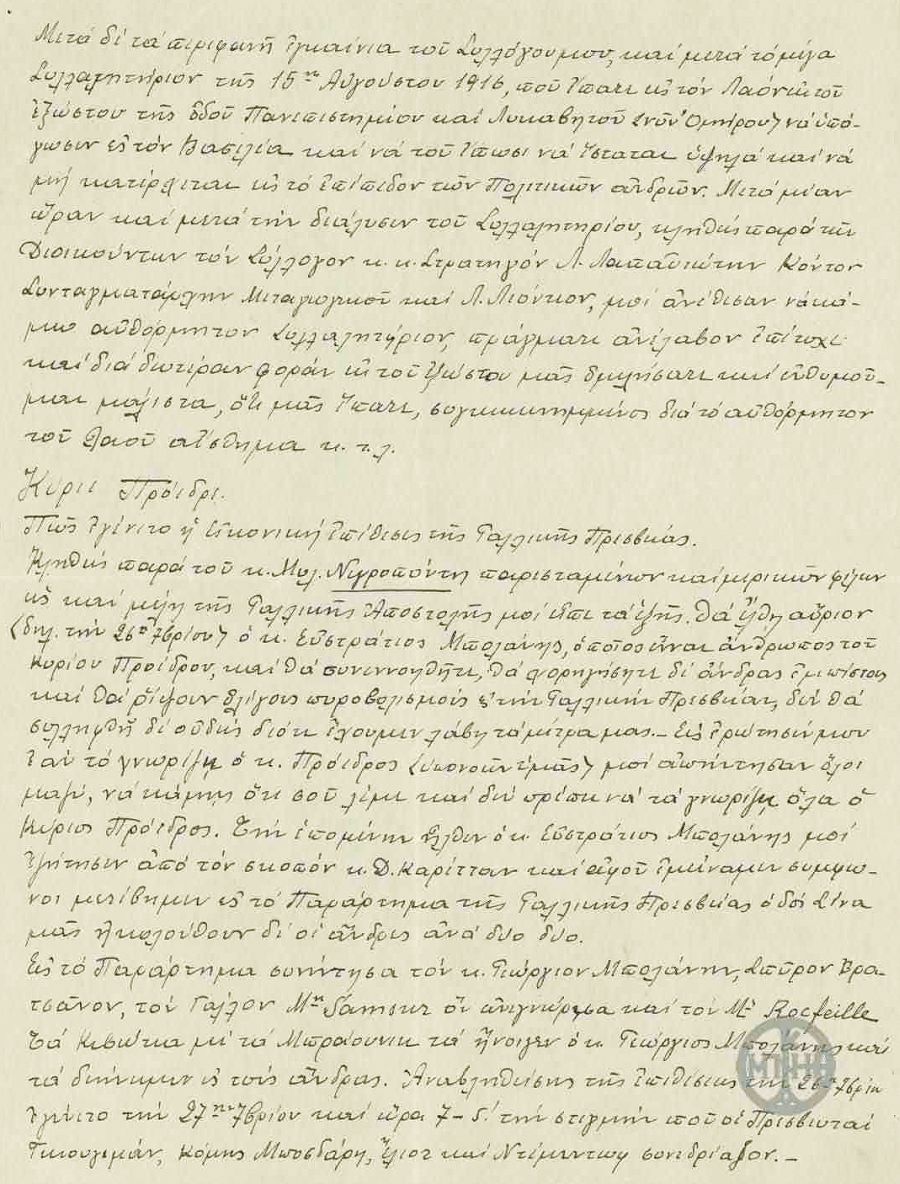 Μετά δέ τά περιφανή ἐγκαίνια τοῦ Συλλόγου μου, καί μετά τό μέγα
Συλλαλητήριον τῆς 15ης Αὐγούστου 1916, ποῦ εἴπατε εἰς τόν Λαόν ἐκ τοῦ
ἐξώστου τῆς ὁδοῦ Πανεπιστημίου καί Λυκαβητοῦ (νῦν Ὁμήρου) νά ὑπά-
γωσιν εἰς τόν Βασιλέα καί νά τοῦ εἴπωσι νά ἵσταται ὑψηλά καί νά
μή κατέρχεται εἰς τό ἐπίπεδον τῶν Πολιτικῶν ἀνδρῶν. Μετά μίαν
ὥραν καί μετά τήν διάλυσιν τοῦ Συλλαλητηρίου, κληθείς παρά τῶν
Διοικούντων τόν Σύλλογον κ. κ. Στρατηγόν Λ. Λαπαθιώτην Κόντον
Συνταγματάρχην Μεταγωγικοῦ καί Λ. Λεόντιον, μοί ἀνέθεσαν νά κά-
μω αὐθόρμητον Συλλαλητήριον, πράγματι ἀνέλαβον ἐπέτυχε
καί διά δευτέραν φοράν ἐκ τοῦ ἐξώστου μᾶς ὁμιλήσατε καί ἐνθυμοῦ-
μαι μάλιστα, ὅτι μᾶς εἴπατε, συγκεκινημμένος διά τό αὐθόρμητον
τοῦ Λαοῦ αἴσθημα κ. τ. λ.
Κύριε Πρόεδρε.
Πῶς ἐγένετο ἡ εἰκονική ἐπίθεσις τῆς Γαλλικῆς Πρεσβείας.
Κληθείς παρά τοῦ κ. Μιλ. Νεγροπόντη παρισταμένων καί μερικῶν φίλων
εἷς καί μέλη τῆς Γαλλικῆς Ἀποστολῆς μοί εἶπε τά ἑξῆς. Θά ἔλθη αὔριον
(δηλ. τήν 26ην 7βρίου) ὁ κ. Εὐστράτιος Μπολάνης, ὁ ὁποῖος εἶναι ἄνθρωπος τοῦ
Κυρίου Προέδρου, καί θά συνεννοηθῆτε, θά χορηγήσητε δέ ἄνδρας ἐμπίστους
καί θά ρίψουν ὀλίγους πυροβολισμούς εἰς τήν Γαλλικήν Πρεσβείαν, δέν θά
συλληφθῆ δέ οὐδείς διότι ἔχουμεν λάβη τά μέτρα μας.– Εἰς ἐρώτησίν μου
ἐάν τό γνωρίζει ὁ κ. Πρόεδρος (ὑπονοῶν ὑμᾶς) μοί ἀπήντησαν ὅλοι
μαζύ, νά κάμης ὅτι σοῦ λέμε καί δέν πρέπει νά τά γνωρίζει ὅλα ὁ
Κύριος Πρόεδρος. Τήν ἑπομένην ἦλθεν ὁ κ. Εὐστράτιος Μπολάνης μοί
ἐζήτησεν ἀπό τόν σκοπόν κ. Δ. Καρίτταν καί ἀφοῦ ἐμείναμεν σύμφω-
νοι μετέβημεν εἰς τό Παράρτημα τῆς Γαλλικῆς Πρεσβείας ὁδός Σίνα
μᾶς ἠκολούθουν δέ οἱ ἄνδρες ἀνά δύο δύο.
Εἰς τό Παράρτημα συνήντησα τόν κ. Γεώργιον Μπολάνην, Σπῦρον Βρα-
τσάνον, τόν Γάλλον Mr Sansur ὅν ἀνεγνώρισα καί τόν Mr Rocfeille
Τά Κιβώτια μέ τά Μπράουνικ τά ἤνοιγεν ὁ κ. Γεώργιος Μπολάνης καί
τά διένειμεν εἰς τούς ἄνδρας. Ἀναβληθείσης τῆς ἐπιθέσεως τήν 26ην 7βρίου
ἐγένετο τήν 27ην 7βρίου καί ὥρα 7– δ. τήν στιγμήν ποῦ οἱ Πρεσβευταί
Γκιουγεμάν, Κόμης Μποσδάρη, Ἔλιοτ καί Ντέμιντωφ συνεδρίαζον.–